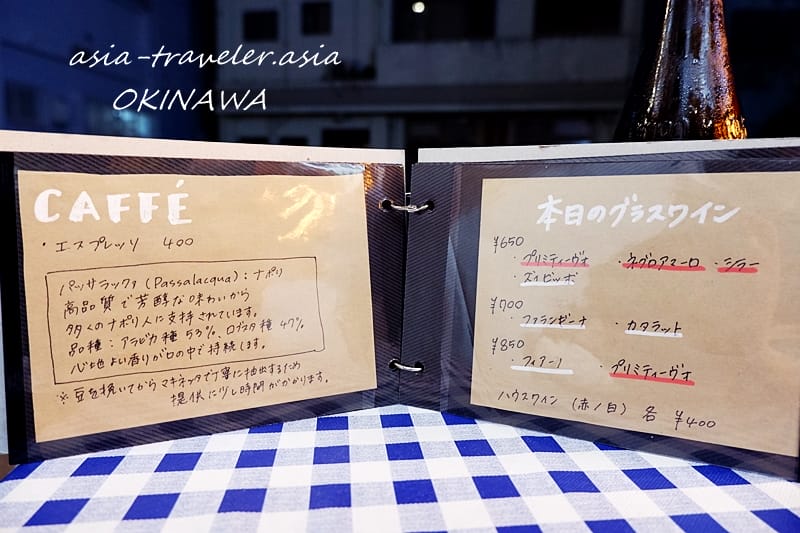 asia-traveler.asia
OKINAWA
CAFFÉ
・エスプレッソ 400
パッサラックァ (Passalacqua) : ナポリ
高品質で芳醇な味わいから
多くのナポリ人に支持されています。
品種 : アラビカ種 53%、ロブスタ種 47%
心地よい香りが口の中で持続します。
※豆を挽いてからマキネッタで丁寧に抽出するため
提供に少し時間がかかります。
本日のグラスワイン
¥650
・プリミティーヴォ ・ネグロアマーロ ・シラー
・ズィビッボ
¥700
・ファランギーナ ・カタラット
¥850
・フィアーノ ・プリミティーヴォ
ハウスワイン (赤/白) 各 ¥400